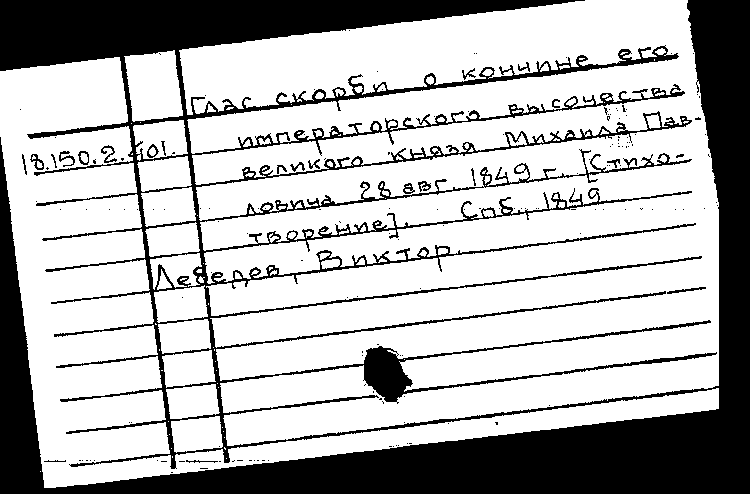 Глас скорби о кончине его
18.150.2.401. императорского высочества
великого князя Михаила Пав-
ловича 28 авг. 1849 г. [Стихо-
творение]. Спб., 1849
Лебедев, Виктор.